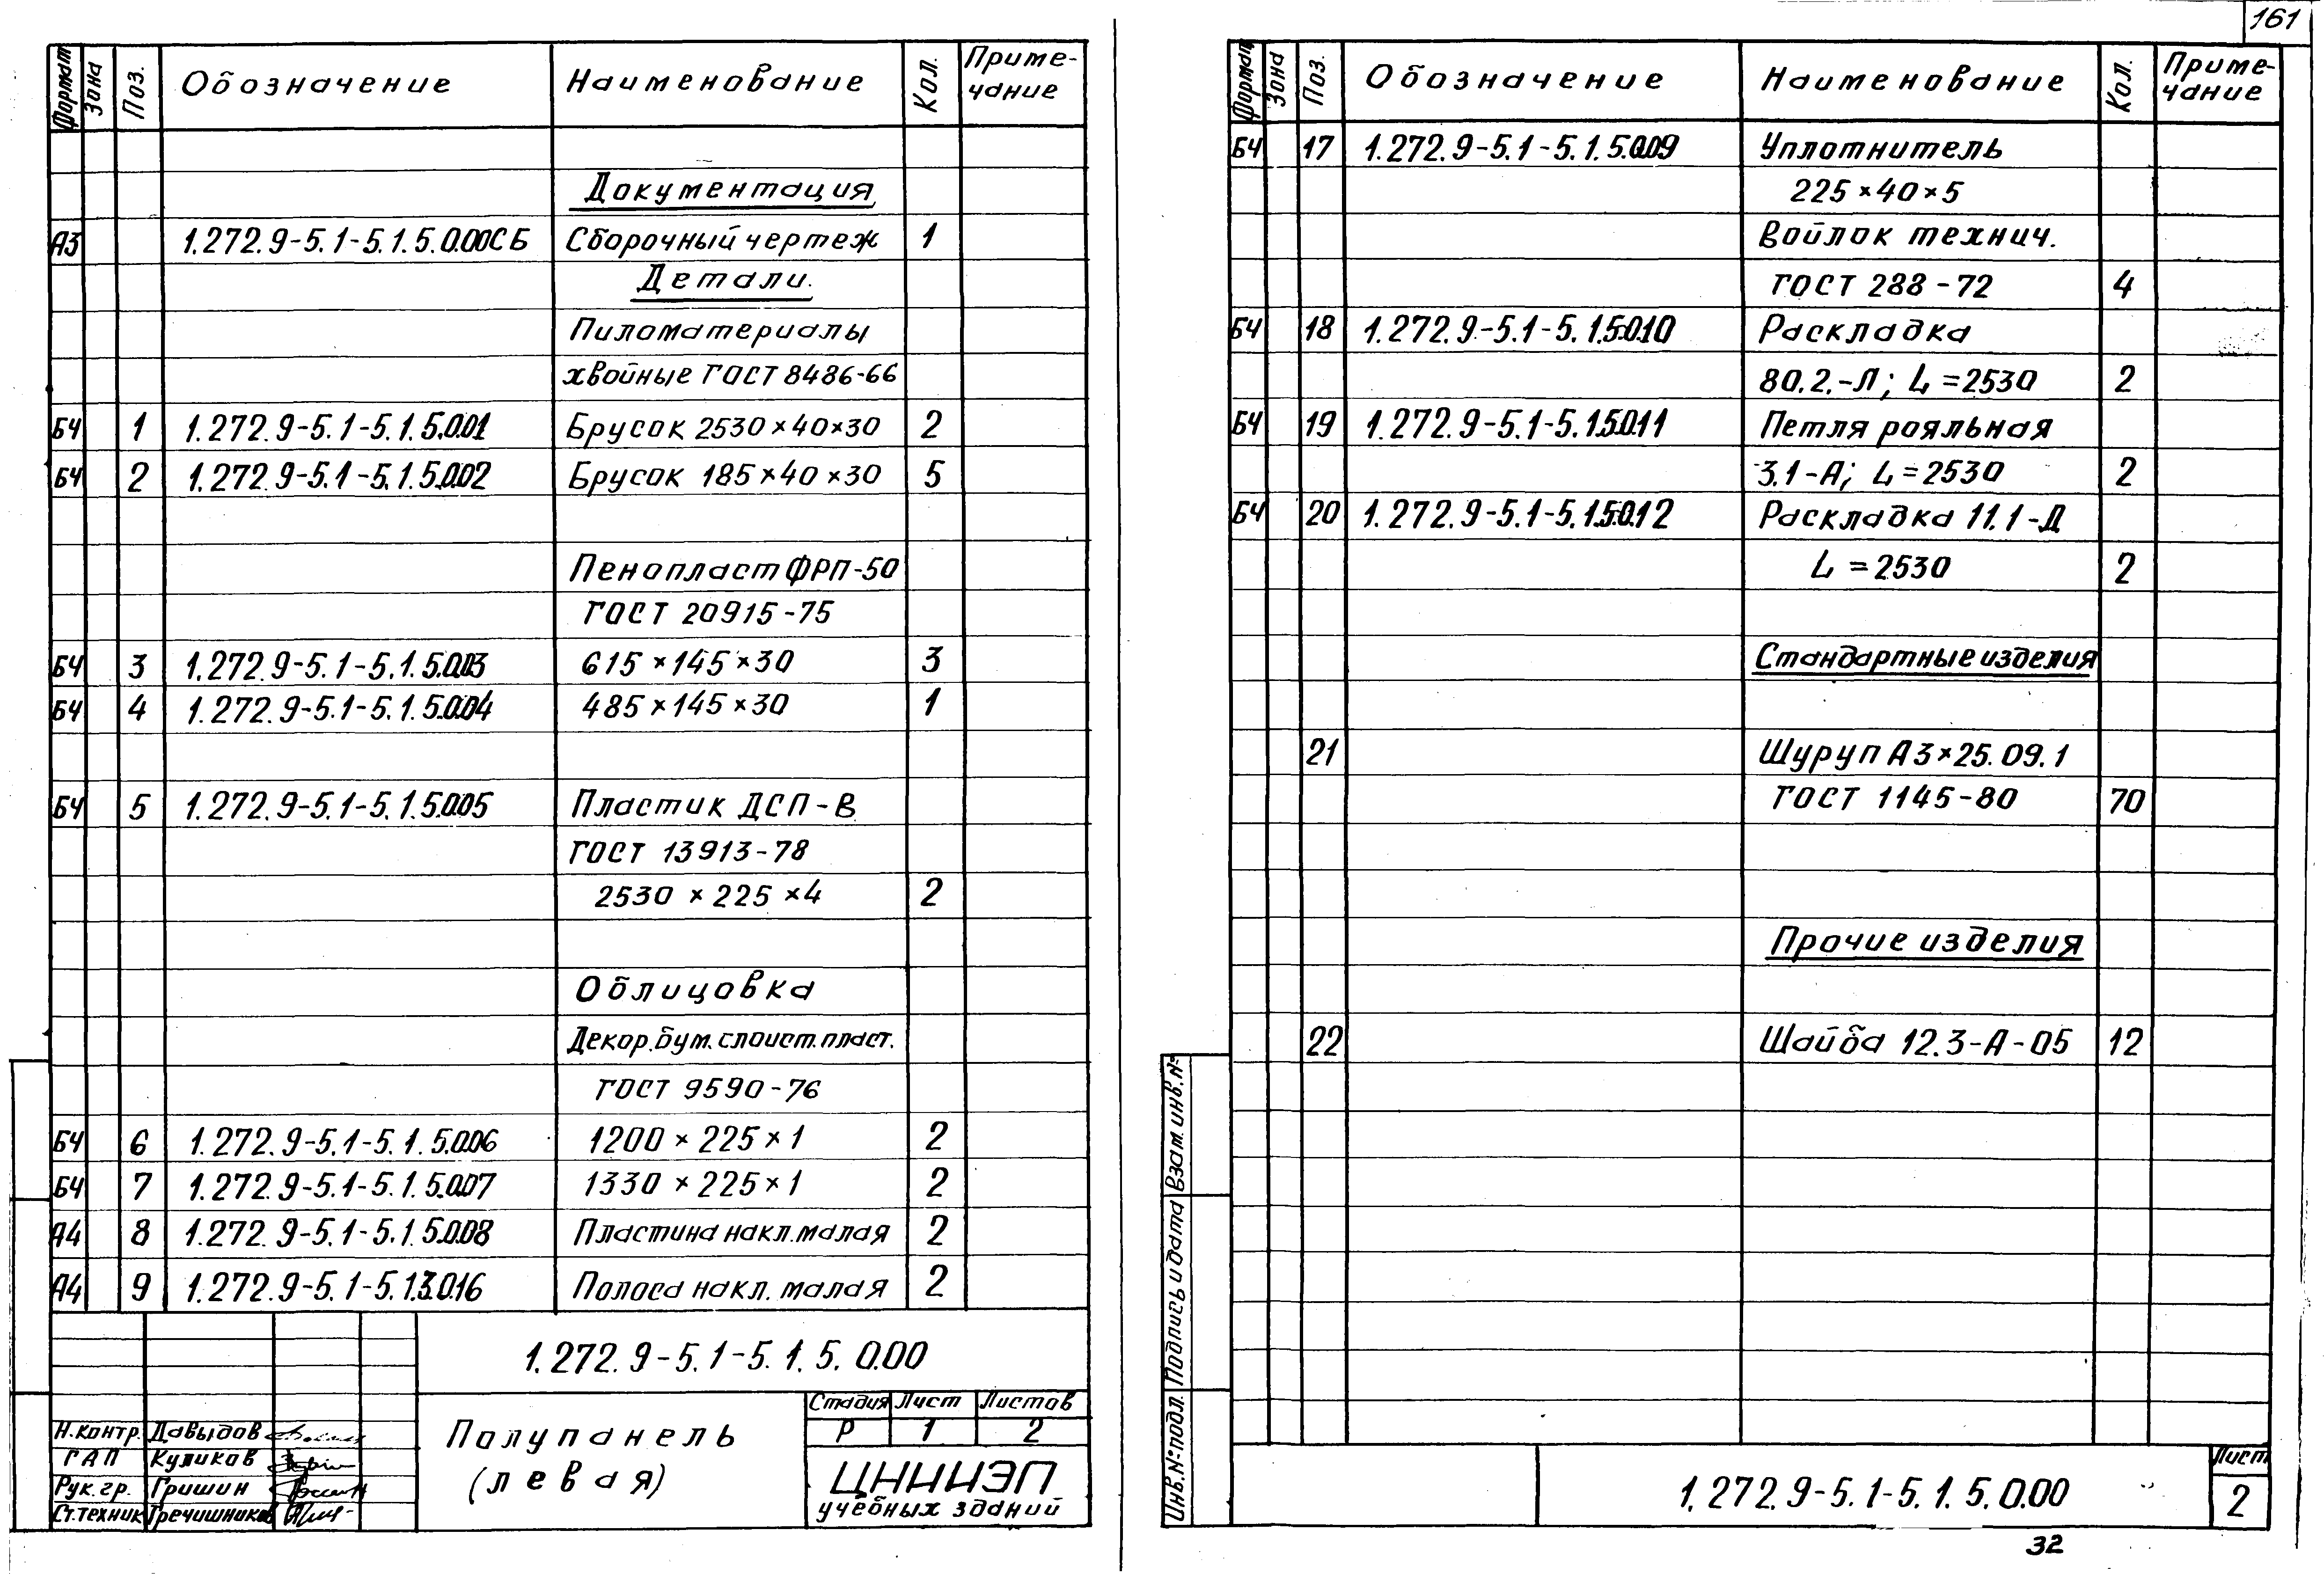 161
Формат Зона Поз. Обозначение Наименование Кол. Приме-
чание
Документация
А3 1.272.9-5.1-5.1.5.0.00СБ Сборочный чертеж 1
Детали.
Пиломатериалы
хвойные ГОСТ 8486-66
БЧ 1 1.272.9-5.1-5.1.5.0.01 Брусок 2530×40×30 2
БЧ 2 1.272.9-5.1-5.1.5.0.02 Брусок 185×40×30 5
Пенопласт ФРП-50
ГОСТ 20915-75
БЧ 3 1.272.9-5.1-5.1.5.0.03 615×145×30 3
БЧ 4 1.272.9-5.1-5.1.5.0.04 485×145×30 1
БЧ 5 1.272.9-5.1-5.1.5.0.05 Пластик ДСП-В
ГОСТ 13913-78
2530×225×4 2
Облицовка
Декор.бум.слоист.пласт.
ГОСТ 9590-76
БЧ 6 1.272.9-5.1-5.1.5.0.06 1200×225×1 2
БЧ 7 1.272.9-5.1-5.1.5.0.07 1330×225×1 2
А4 8 1.272.9-5.1-5.1.5.0.08 Пластина накл.малая 2
А4 9 1.272.9-5.1-5.1.3.0.16 Полоса накл. малая 2
1.272.9-5.1-5.1.5.0.00
Н.контр. Давыдов
ГАП Куликов
Рук.гр. Гришин
Ст.техник Гречишников
Полупанель
(левая)
Стадия Лист Листов
Р 1 2
ЦНИИЭП
учебных зданий
Формат Зона Поз. Обозначение Наименование Кол. Приме-
чание
БЧ 17 1.272.9-5.1-5.1.5.0.09 Уплотнитель
225×40×5
Войлок технич.
ГОСТ 288-72 4
БЧ 18 1.272.9-5.1-5.1.5.0.10 Раскладка
80.2.-Л; L=2530 2
БЧ 19 1.272.9-5.1-5.1.5.0.11 Петля рояльная
3.1-А; L=2530 2
БЧ 20 1.272.9-5.1-5.1.5.0.12 Раскладка 11.1-Д
L=2530 2
Стандартные изделия
21 Шуруп А3×25.09.1
ГОСТ 1145-80 70
Прочие изделия
22 Шайба 12.3-А-05 12
Инв.№подл. Подпись и дата Взам.инв.№
1.272.9-5.1-5.1.5.0.00
Лист
2
32